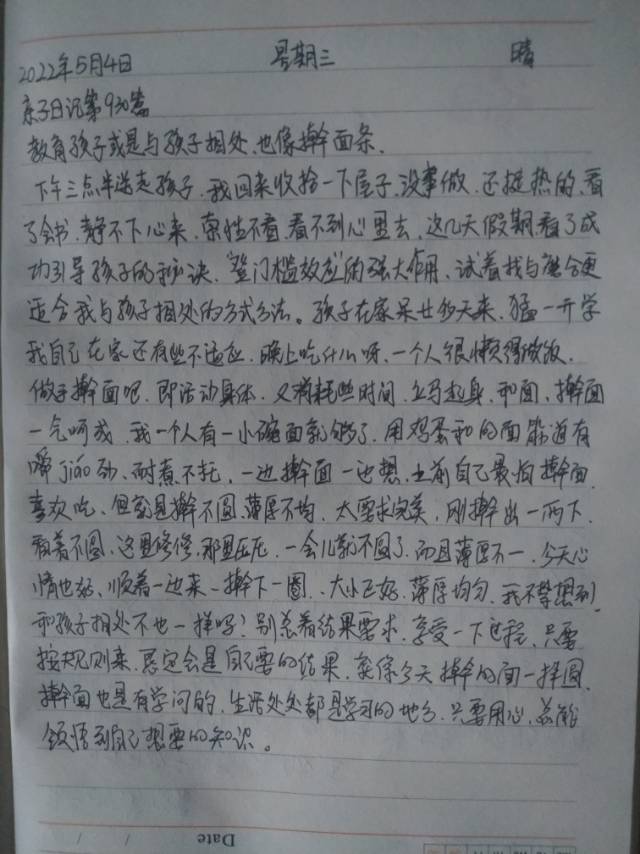 2022年5月4日 星期三 晴
亲子日记第930篇
教育孩子或是与孩子相处、也像擀面条.
下午三点半送走孩子.我回来收拾一下屋子,没事做.还挺热的,看
了会书.静不下心来.索性不看.看不到心里去.这几天假期.看了成
功引导孩子的秘诀.“登门槛效应”的强大作用、试着找与整合更
适合我与孩子相处的方式方法。孩子在家呆廿多天来,猛一开学
我自己在家还有些不适应.晚上吃什么呀.一个人很懒得做饭.
做手擀面吧.即活动身体.又消耗些时间.立马起身.和面、擀面
一气呵成.我一个人有一小碗面就够了.用鸡蛋和的面筋道有
嚼jiáo劲、耐煮不坨.一边擀面一边想.以前自己最怕擀面.
喜欢吃、但就是擀不圆.薄厚不均.太要求完美,刚擀出一两下.
看着不圆.这里修修.那里压压.一会儿就不圆了.而且薄厚不一.今天心
情也好.顺着一边来一擀下一圈..大小正好.薄厚均匀.我不禁想到.
和孩子相处不也一样吗?别总着结果要求.享受一下过程.只要
按规则来.恶定会是自己要的结果.就像今天擀的面一样圆.
擀面也是有学问的.生活处处都是学习的地方.只要用心.总能
领悟到自己想要的知识。
Date